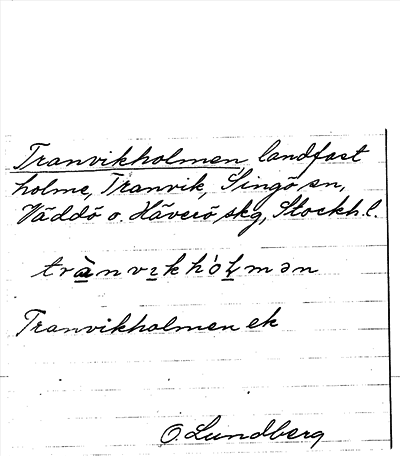 Tranvikholmen, landfast
holme, Tranvik, Singö sn,
Väddö o. Häverö skg, Stockh. l.
trànvık hólmən
Tranvikholmen ek
O. Lundberg